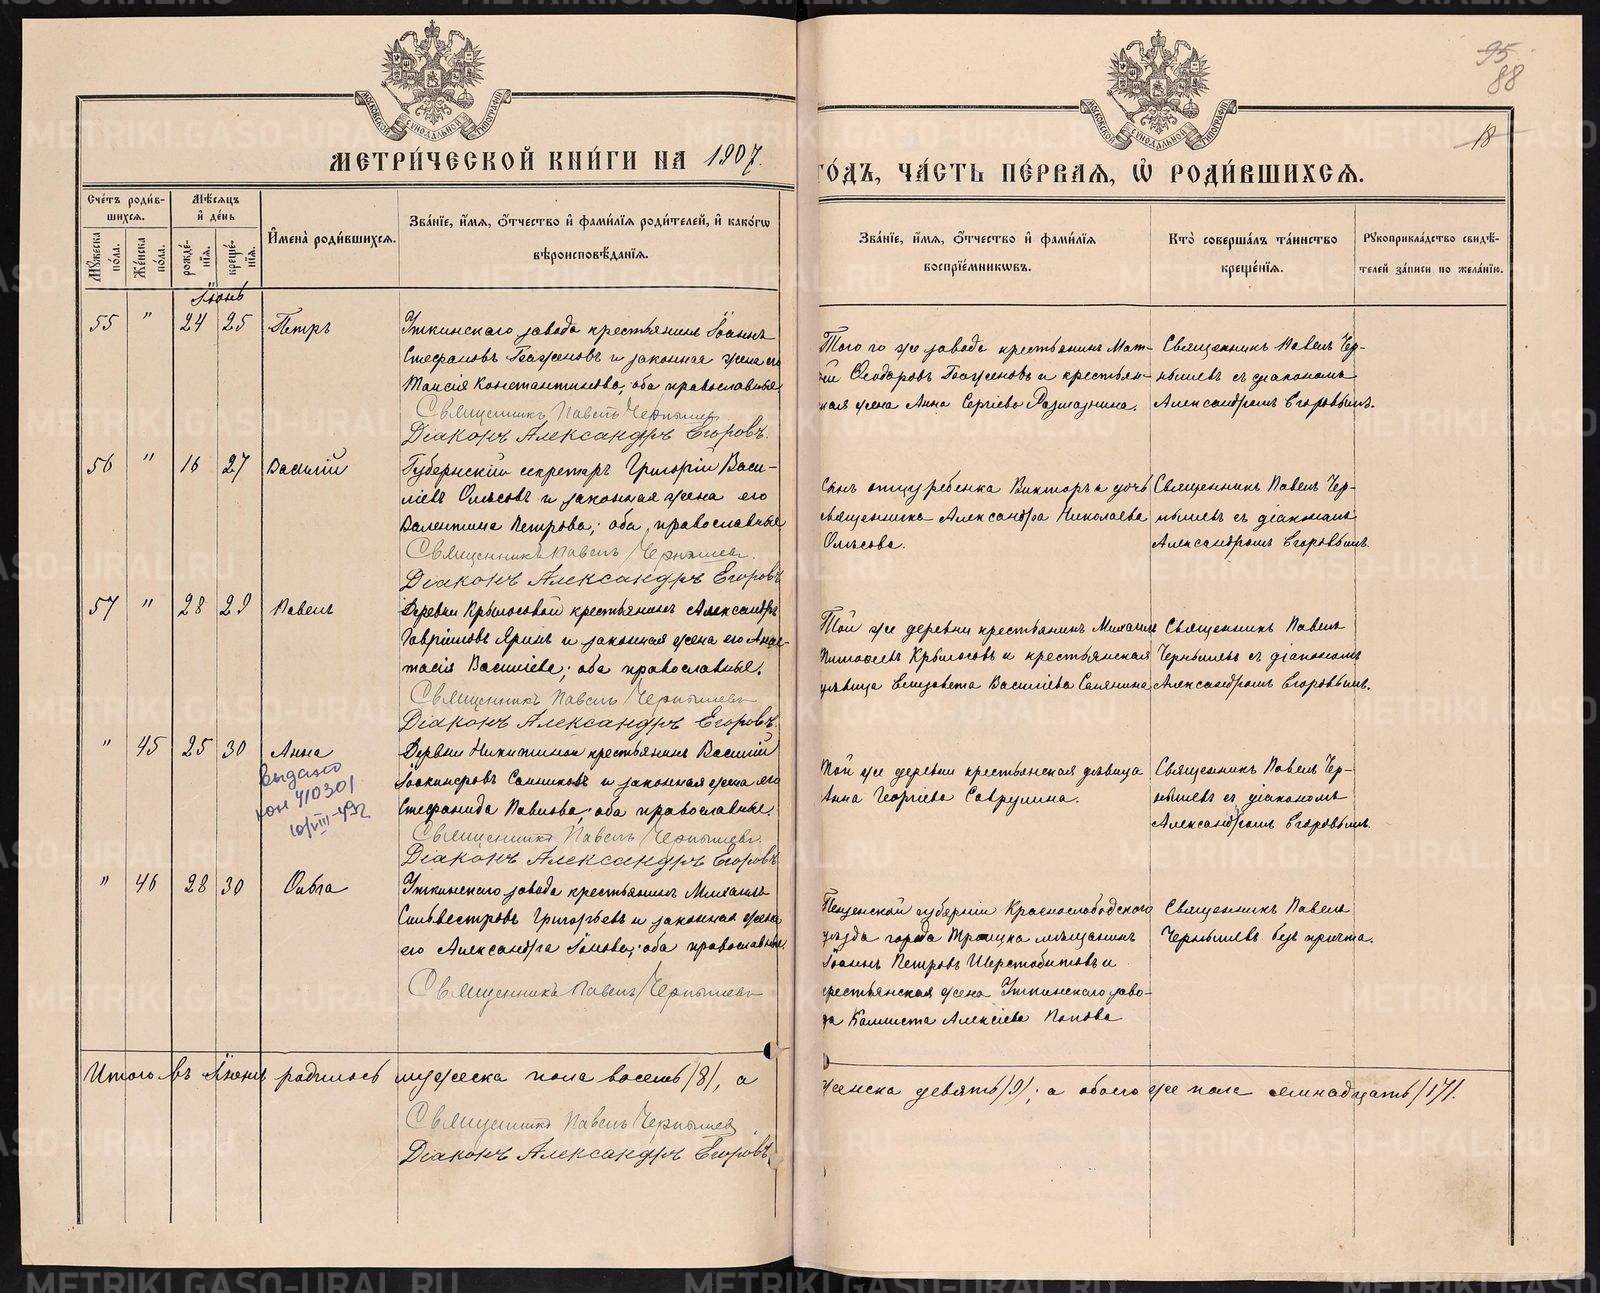 95
88
18
МОСКОВСКОЙ СѴНОДАЛЬНОЙ ТИПОГРАФІИ
МОСКОВСКОЙ СѴНОДАЛЬНОЙ ТИПОГРАФІИ
МЕТРИ́ЧЕСКОЙ КНИ́ГИ НА 1907.
ГО́ДЪ, ЧА́СТЬ ПЕ́РВАЯ, Ѡ҆ РОДИ́ВШИХСЯ.
Сче́тъ роди́в-
шихся.
Мꙋ́жеска по́ла.
Же́нска по́ла.
Мѣ́сяцъ
и҆ де́нь
рожде́-
нїя.
креще́-
нїя.
И҆мена̀ роди́вшихся.
Зва́нїе, и҆́мя, ѻ҆́тчество и҆ фами́лїя роди́телей, и҆ како́гѡ
вѣроисповѣ́данїя.
Зва́нїе, и҆́мя, ѻ҆́тчество и҆ фами́лїя
воспрїе́мникѡвъ.
Кто̀ соверша́лъ та́инство
креще́нїя.
Рꙋкоприкла́дство свидѣ́-
телей за́писи по жела́нїю.
Іюнь
55 " 24 25 Петръ
Уткинскаго завода крестьянинъ Іоаннъ
Стефановъ и законная жена его
Таисія Константинова, оба православные
Священникъ Павелъ Чернышев
Діаконъ Александръ Егоровъ.
Того го же завода крестьянинъ Мат-
Ѳеодоровъ и крестьян-
ская жена Анна Сергіева
Священникъ Павелъ Чер-
нышевъ съ діакономъ
Александромъ Егоровымъ.
56 " 16 27 Василій
Губернскій секретарь Григорій Васи-
ліевъ и законная жена его
Валентина Петрова; оба православные
Священникъ Павелъ Чернышев.
Діаконъ Александръ Егоровъ
Сынъ отца ребенка Викторъ и дочь
священника Александра Николаева
Священникъ Павелъ Чер-
нышевъ съ діакономъ
Александромъ Егоровымъ.
57 " 28 29 Павелъ
Деревни Крылосовой крестьянинъ Александръ
Гавріиловъ Яринъ и законная жена его Анас-
тасія Василіева; оба православные.
Священникъ Павелъ Чернышевъ
Діаконъ Александръ Егоровъ.
Той же деревни крестьянинъ Михаилъ
Крылосовъ и крестьянская
дѣвица Елизавета Василіева
Священникъ Павелъ
Чернышевъ съ діакономъ
Александромъ Егоровымъ.
" 45 25 30 Анна
Выдано
410301
10/VIII-49г
Деревни Никитиной крестьянинъ Василій
Іоакимовъ Санниковъ и законная жена его
Стефанида Павлова; оба православные.
Священникъ Павелъ Чернышевъ.
Діаконъ Александръ Егоровъ
Той же деревни крестьянская дѣвица
Анна Георгіева Саврулина.
Священникъ Павелъ Чер-
нышевъ съ діакономъ
Александромъ Егоровымъ.
" 46 28 30 Ольга
Уткинскаго завода крестьянинъ Михаилъ
Сильвестровъ Григорьевъ и законная жена
его Александра Іонова; оба православные
Священникъ Павелъ Чернышевъ
Пензенской губерніи Краснослободскаго
уѣзда города Троицка мѣщанинъ
Іоаннъ Петровъ Шерстобитовъ и
крестьянская жена Уткинскаго заво-
да Алексіева Попова
Священникъ Павелъ
Чернышевъ безъ причта.
Итого въ Іюнѣ родилось мужеска пола восемь /8/, а
женска девять /9/; а обоего же пола семнадцать /17/.
Священникъ Павелъ Чернышев
Діаконъ Александръ Егоровъ.
METRIKI.GASO-URAL.RU